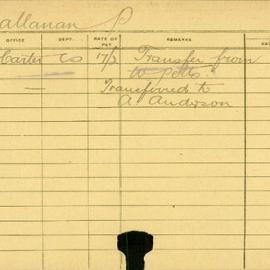 allanan P
OFFICE DEPT. RATE OF PAY REMARKS
Carter Co 17/2 Transfer from
W Potts
— Transferred to
A. Anderson